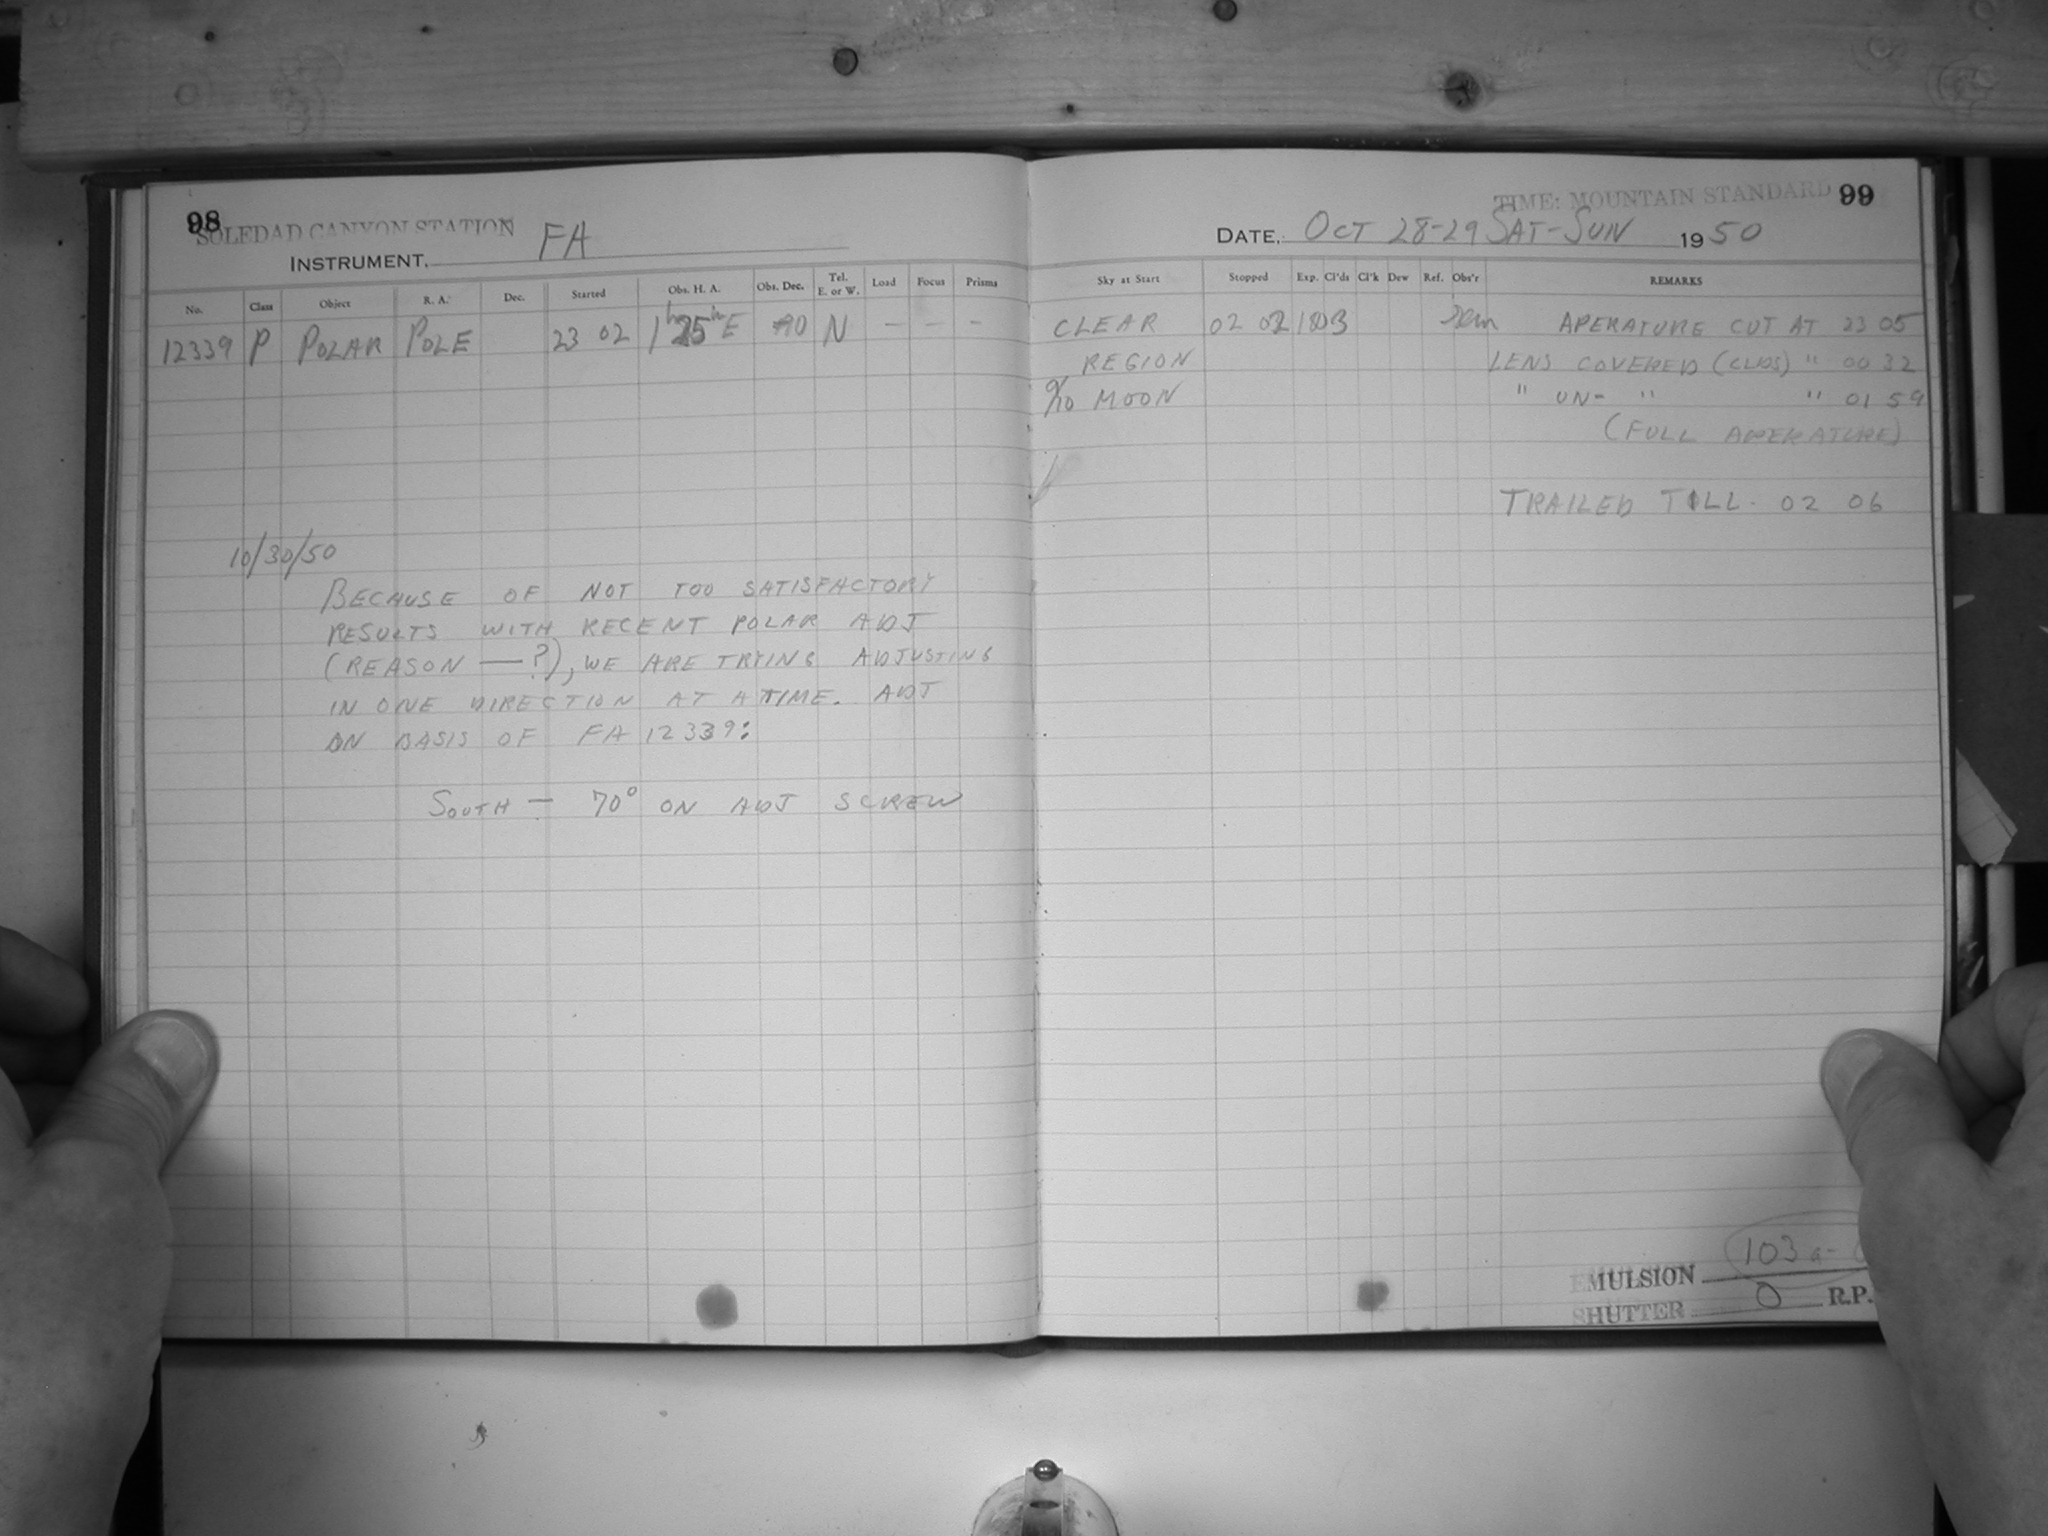 98
SOLEDAD CANYON STATION
INSTRUMENT. FA
No. Class Object R. A. Dec. Started Obs. H. A. Obs. Dec. Tel. E. or W. Load Focus Prisms
12339 P POLAR POLE 23 02 E 90 N — — —
10/30/50
BECAUSE OF NOT TOO SATISFACTORY
RESULTS WITH RECENT POLAR ADJ
(REASON — ?), WE ARE TRYING ADJUSTING
IN ONE DIRECTION AT A TIME. ADJ
ON BASIS OF FA 12339:
SOUTH — 70° ON ADJ SCREW
TIME: MOUNTAIN STANDARD 99
DATE, OCT 28-29 SAT-SUN 1950
Sky at Start Stopped Exp. Cl'ds Cl'k Dew Ref. Obs'r REMARKS
CLEAR 02 02 APERATURE CUT AT 23 05
REGION LENS COVERED (CLDS) " 00 32
9/10 MOON " UN- " " 01 59
(FULL APERATURE)
TRAILED TILL. 02 06
EMULSION 103a-
SHUTTER O R.P.